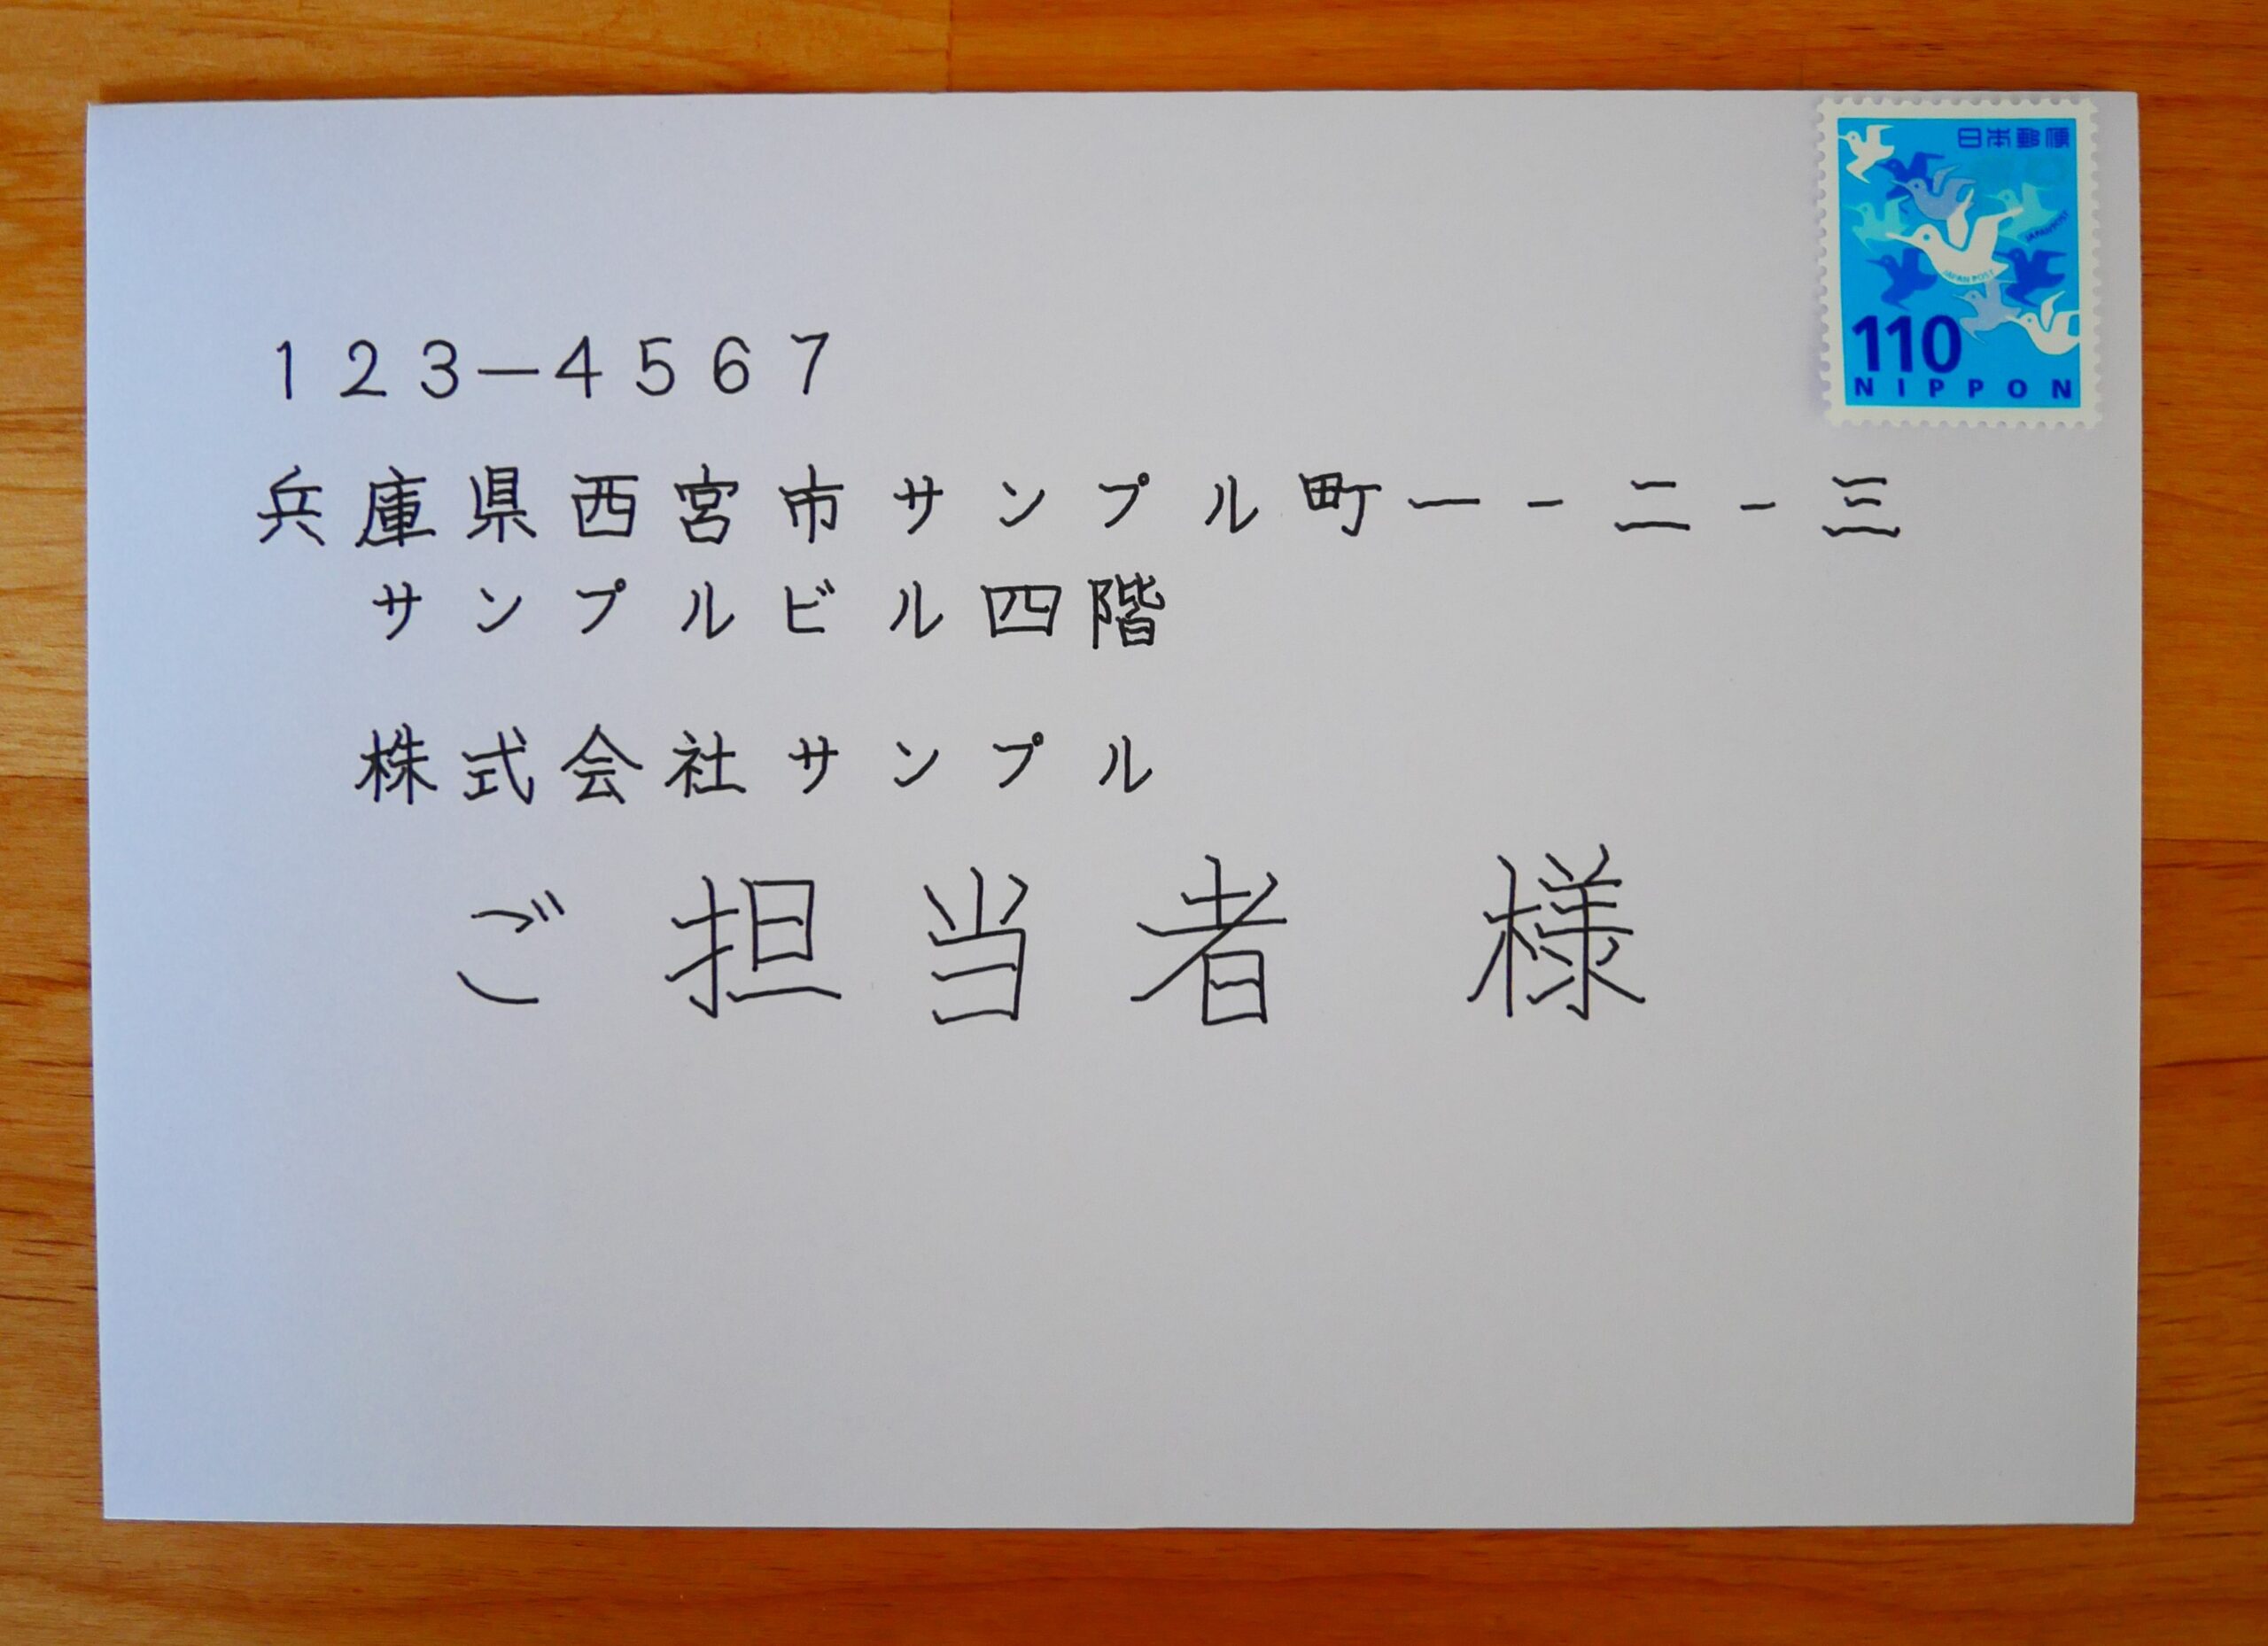 日本郵便
JAPAN POST
JAPAN POST
110
NIPPON
123-4567
兵庫県西宮市サンプル町一-二-三
サンプルビル四階
株式会社サンプル
ご担当者 様